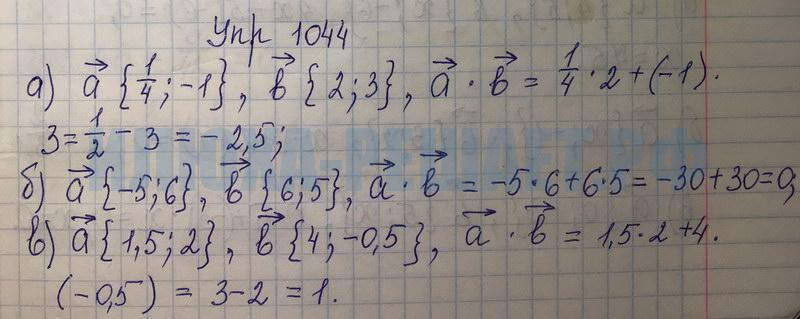 Упр 1044
а) a⃗ {1/4; -1}, b⃗ {2; 3}, a⃗ · b⃗ = 1/4 · 2 + (-1) ·
3 = 1/2 - 3 = -2,5;
б) a⃗ {-5; 6}, b⃗ {6; 5}, a⃗ · b⃗ = -5 · 6 + 6 · 5 = -30 + 30 = 0;
в) a⃗ {1,5; 2}, b⃗ {4; -0,5}, a⃗ · b⃗ = 1,5 · 2 + 4 ·
(-0,5) = 3 - 2 = 1.